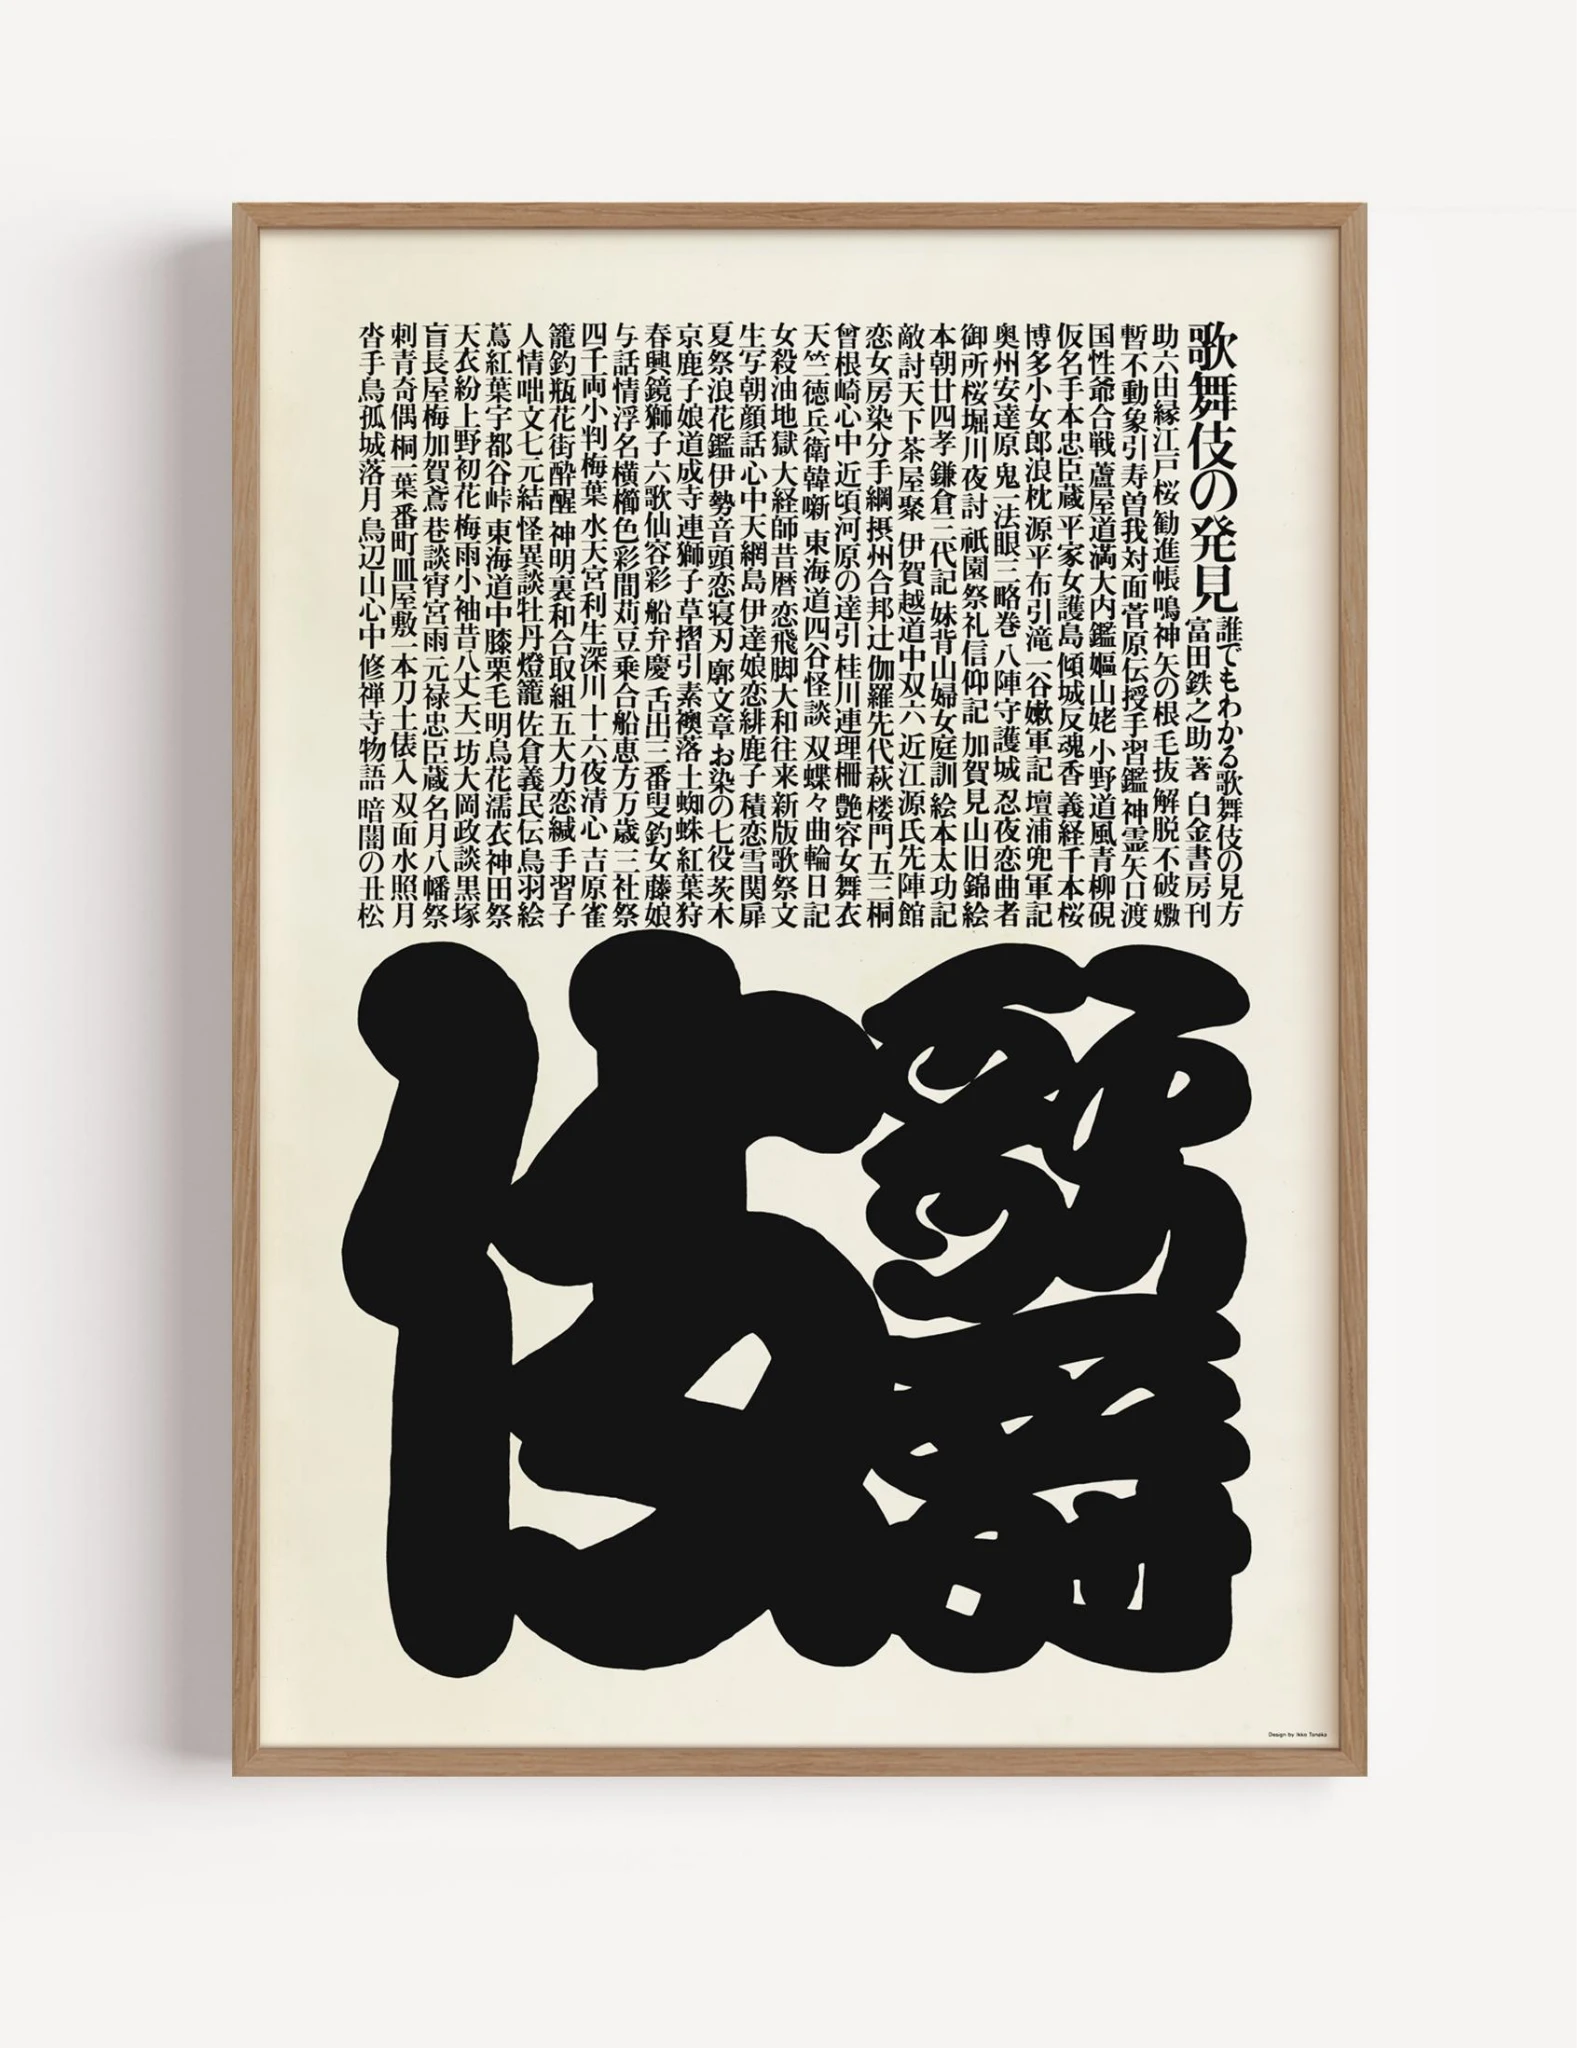 歌舞伎の発見
誰でもわかる歌舞伎の見方
富田鉄之助 著 白金書房刊
助六由縁江戸桜 勧進帳 鳴神 矢の根 毛抜 解脱 不破 嫐
暫 不動 象引 寿曽我対面 菅原伝授手習鑑 神霊矢口渡
国性爺合戦 蘆屋道満大内鑑 嫗山姥 小野道風青柳硯
仮名手本忠臣蔵 平家女護島 傾城反魂香 義経千本桜
博多小女郎浪枕 源平布引滝 一谷嫩軍記 壇浦兜軍記
奥州安達原 鬼一法眼三略巻 八陣守護城 忍夜恋曲者
御所桜堀川夜討 祇園祭礼信仰記 加賀見山旧錦絵
本朝廿四孝 鎌倉三代記 妹背山婦女庭訓 絵本太功記
敵討天下茶屋聚 伊賀越道中双六 近江源氏先陣館
恋女房染分手綱 摂州合邦辻 伽羅先代萩 楼門五三桐
曾根崎心中 近頃河原の達引 桂川連理柵 艶容女舞衣
天竺徳兵衛韓噺 東海道四谷怪談 双蝶々曲輪日記
女殺油地獄 大経師昔暦 恋飛脚大和往来 新版歌祭文
生写朝顔話 心中天網島 伊達娘恋緋鹿子 積恋雪関扉
夏祭浪花鑑 伊勢音頭恋寝刃 廓文章 お染の七役 茨木
京鹿子娘道成寺 連獅子 草摺引 素襖落 土蜘蛛 紅葉狩
春興鏡獅子 六歌仙容彩 船弁慶 舌出三番叟 釣女 藤娘
与話情浮名横櫛 色彩間苅豆 乗合船恵方万歳 三社祭
四千両小判梅葉 水天宮利生深川 十六夜清心 吉原雀
籠釣瓶花街酔醒 神明裏和合取組 五大力恋緘 手習子
人情咄文七元結 怪異談牡丹燈籠 佐倉義民伝 鳥羽絵
蔦紅葉宇都谷峠 東海道中膝栗毛 明烏花濡衣 神田祭
天衣紛上野初花 梅雨小袖昔八丈 天一坊大岡政談 黒塚
盲長屋梅加賀鳶 巷談宵宮雨 元禄忠臣蔵 名月八幡祭
刺青奇偶 桐一葉 番町皿屋敷 一本刀土俵入 双面水照月
沓手鳥孤城落月 鳥辺山心中 修禅寺物語 暗闇の丑松
歌舞
伎
Design by Ikko Tanaka